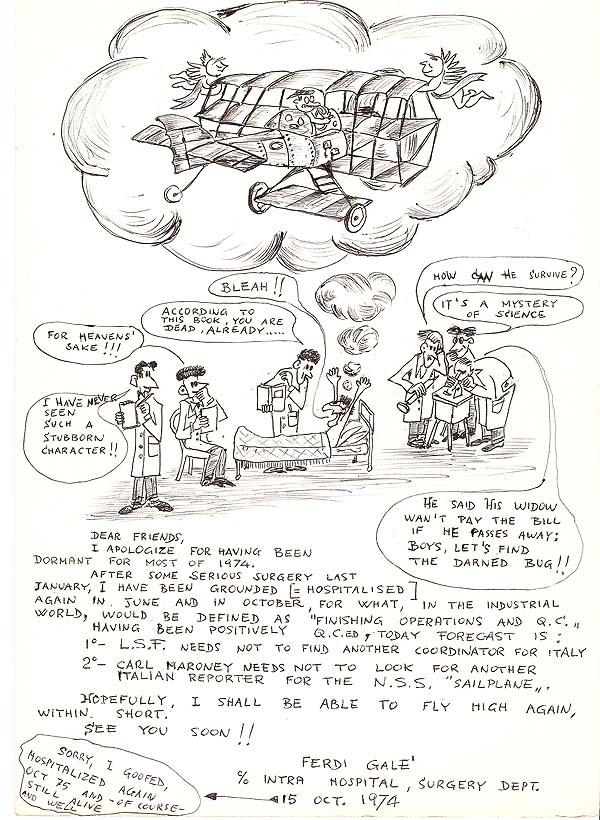 BLEAH!!
ACCORDING TO
THIS BOOK, YOU ARE
DEAD, ALREADY.....
FOR HEAVENS'
SAKE!!!
I HAVE NEVER
SEEN
SUCH A
STUBBORN
CHARACTER!!
HOW CAN HE SURVIVE?
IT'S A MYSTERY
OF SCIENCE
HE SAID HIS WIDOW
WAN'T PAY THE BILL
IF HE PASSES AWAY:
BOYS, LET'S FIND
THE DARNED BUG!!
DEAR FRIENDS,
I APOLOGIZE FOR HAVING BEEN
DORMANT FOR MOST OF 1974.
AFTER SOME SERIOUS SURGERY LAST
JANUARY, I HAVE BEEN GROUNDED [= HOSPITALISED]
AGAIN IN JUNE AND IN OCTOBER, FOR WHAT, IN THE INDUSTRIAL
WORLD, WOULD BE DEFINED AS "FINISHING OPERATIONS AND Q.C.„
HAVING BEEN POSITIVELY Q.C.ED, TODAY FORECAST IS:
1°- L.S.F. NEEDS NOT TO FIND ANOTHER COORDINATOR FOR ITALY
2°- CARL MARONEY NEEDS NOT TO LOOK FOR ANOTHER
ITALIAN REPORTER FOR THE N.S.S. "SAILPLANE„.
HOPEFULLY, I SHALL BE ABLE TO FLY HIGH AGAIN,
WITHIN SHORT.
SEE YOU SOON!!
FERDI GALE'
c/o INTRA HOSPITAL, SURGERY DEPT.
15 OCT. 1974
SORRY, I GOOFED,
HOSPITALIZED AGAIN
OCT 75 AND -OF COURSE-
STILL ALIVE
AND WELL